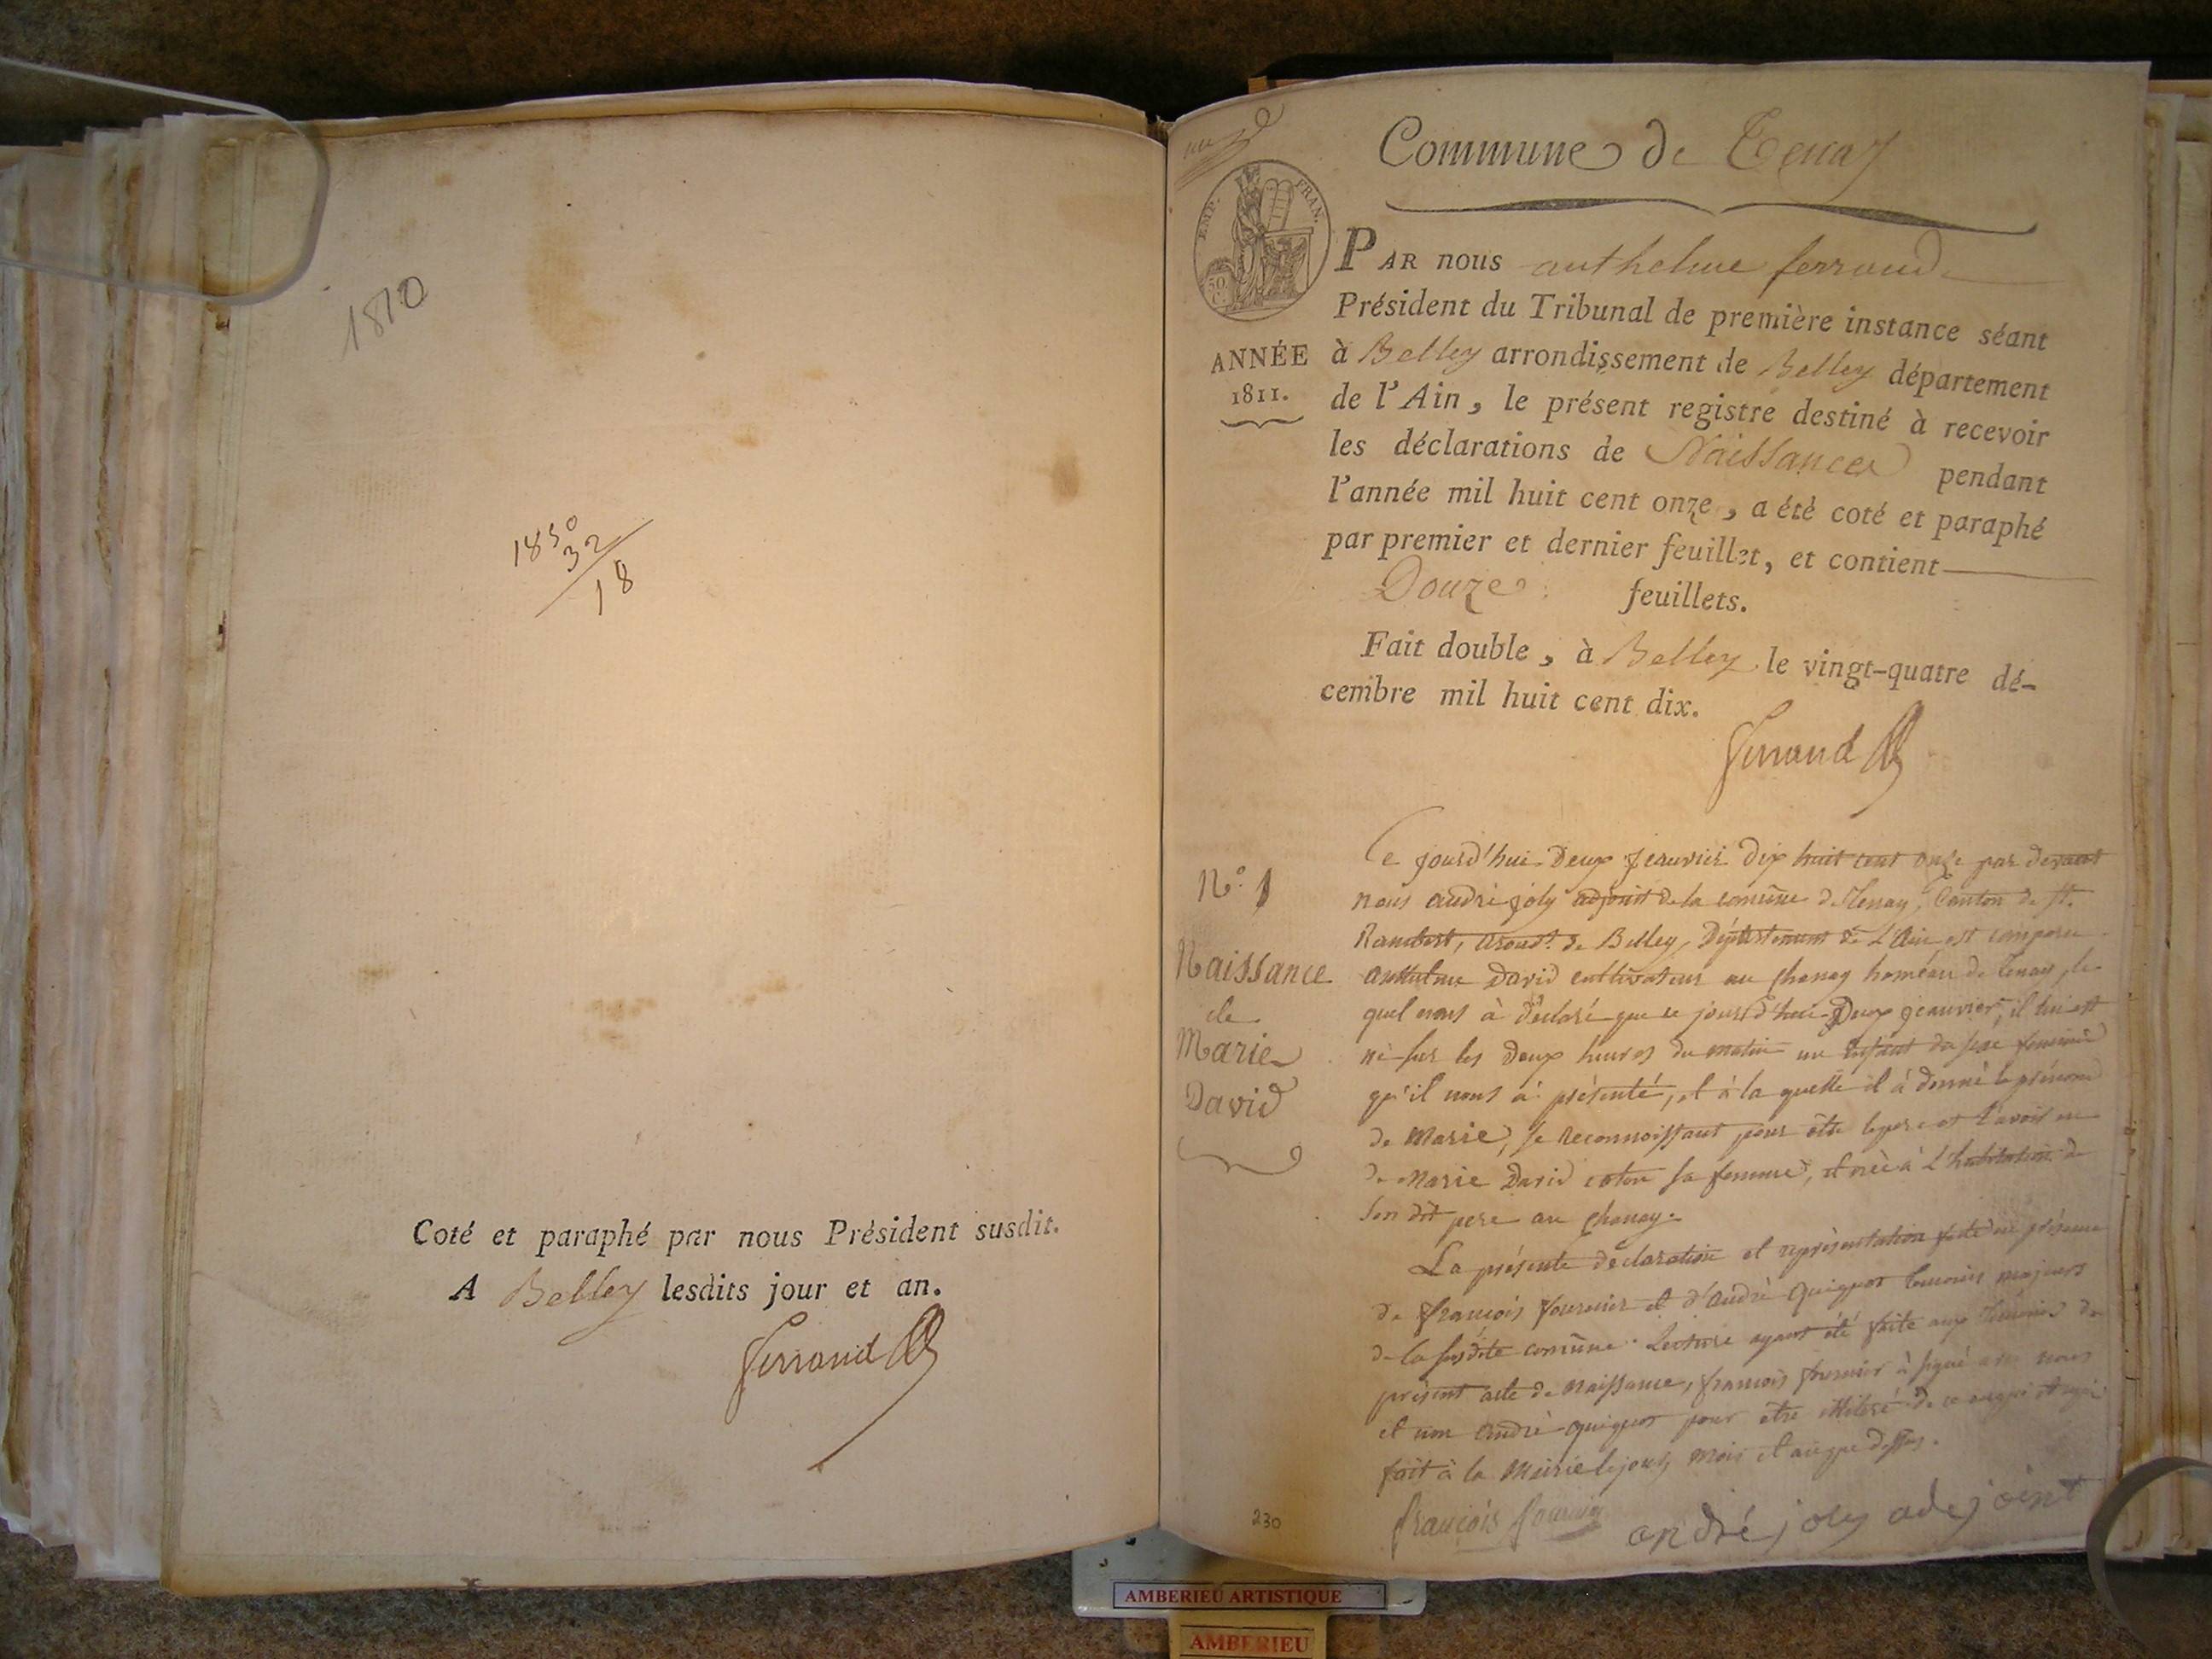 1810
1850
32
18
Coté et paraphé par nous Président susdit.
A Belley lesdits jour et an.
ferrand
Commune de Tenay
EMP. FRAN.
50 C.
ANNÉE
1811.
PAR nous anthelme ferrand
Président du Tribunal de première instance séant
à Belley arrondissement de Belley département
de l'Ain, le présent registre destiné à recevoir
les déclarations de Naissances pendant
l'année mil huit cent onze, a été coté et paraphé
par premier et dernier feuillet, et contient
Douze feuillets.
Fait double, à Belley le vingt-quatre dé-
cembre mil huit cent dix.
ferrand
N.° 1
Naissance
de
Marie
David
Ce jourd'hui Deux jeanvier dix huit cent onze par devant
nous andré joly adjoint de la comune de Tenay, Canton de St.
Rambert, arond.t de Belley, Département de L'Ain est comparu
anthelme David cultivateur au Chanay homéau de Tenay, le
quel nous à déclaré que ce jourd'hui Deux jeanvier, il lui est
né sur les Deux heures du matin un enfant du sexe feminin
qu'il nous à présenté, et à la quelle il à donné le prénom
de Marie, se reconnoissant pour être le pere et l'avoir eu
de Marie David sa femme, et née à L'habitation de
son dit pere au Chanay.
La présente déclaration et représentation faite en présence
de françois fournier et d'andré quignet temoins majeurs
de la susdite comune. Lecture ayant été faite aux temoins du
présent acte de naissance, francois fournier à signé avec nous
et non andré quignet pour être illiteré de ce enquis
fait à la Mairie le jour, mois et an que dessus.
françois fournier
andré joly adejoint
230
AMBERIEU ARTISTIQUE
AMBERIEU